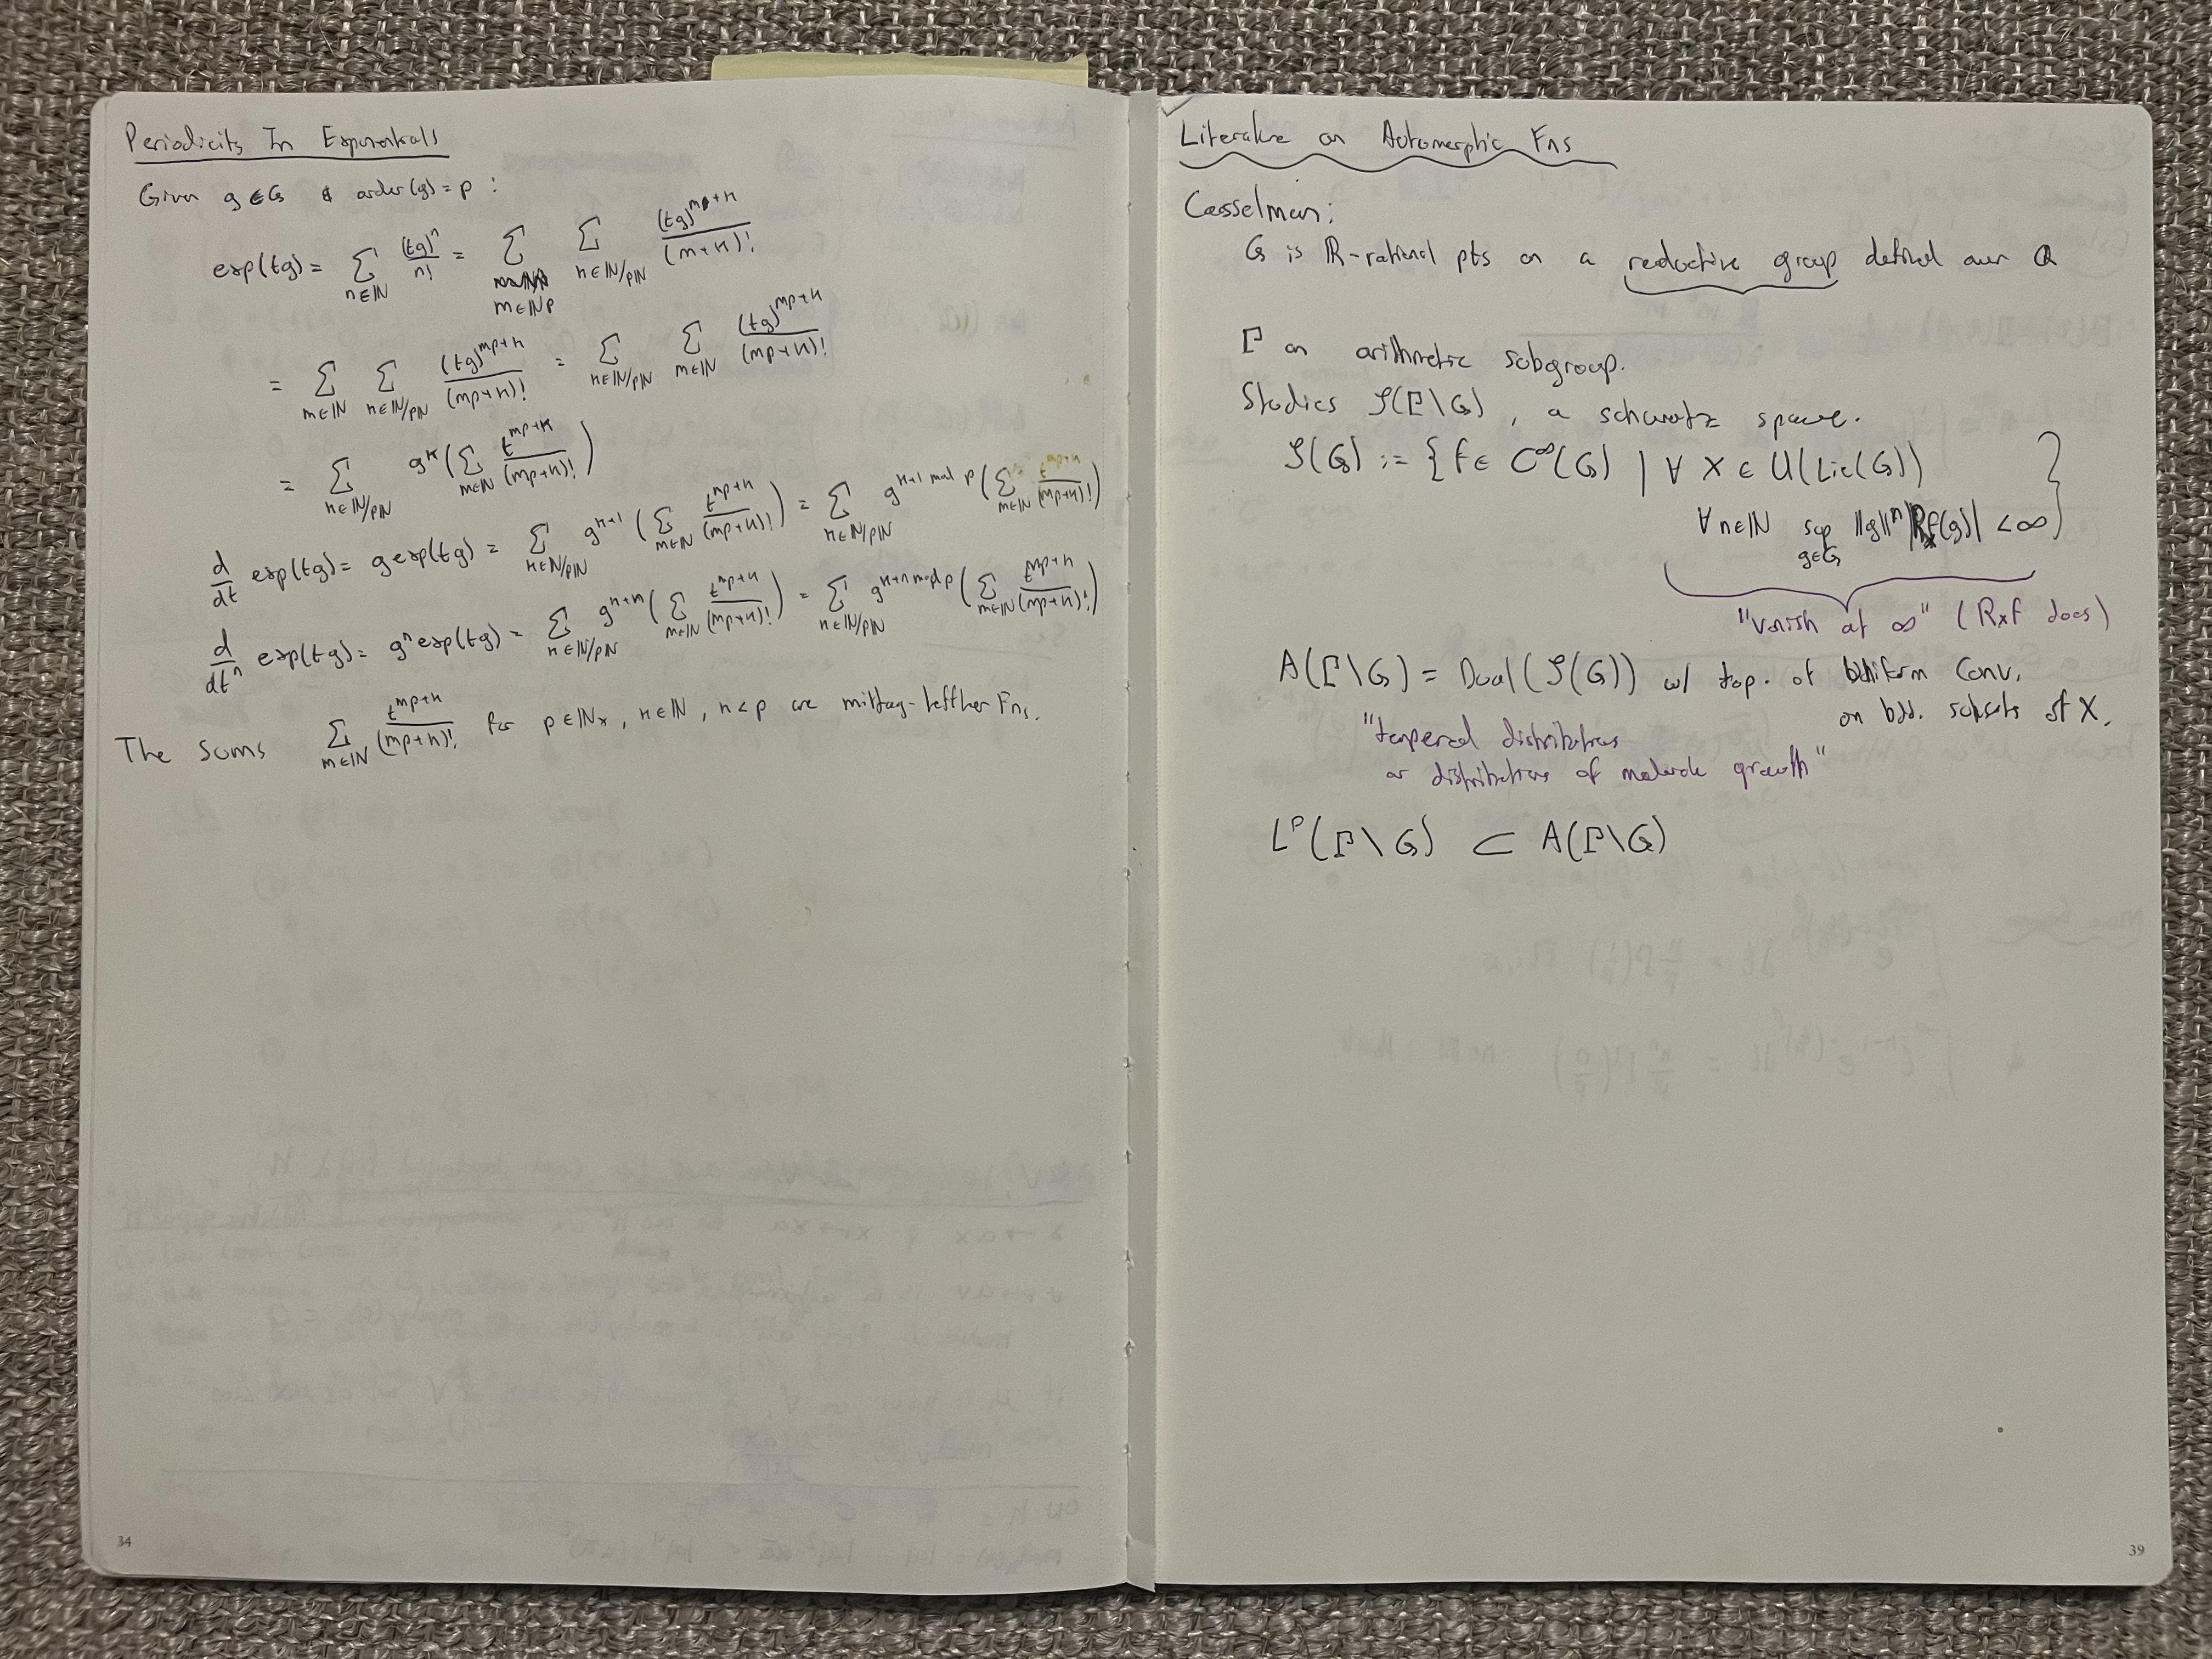 Periodicity In Exponentials
Given g ∈ G & order(g) = p :
exp(tg) = Σ_{n∈ℕ} (tg)^n / n! = Σ_{m∈ℕp} Σ_{κ∈ℕ/pℕ} (tg)^{mp+κ} / (m+κ)!
= Σ_{m∈ℕ} Σ_{κ∈ℕ/pℕ} (tg)^{mp+κ} / (mp+κ)! = Σ_{κ∈ℕ/pℕ} Σ_{m∈ℕ} (tg)^{mp+κ} / (mp+κ)!
= Σ_{κ∈ℕ/pℕ} g^κ ( Σ_{m∈ℕ} t^{mp+κ} / (mp+κ)! )
d/dt exp(tg) = g exp(tg) = Σ_{κ∈ℕ/pℕ} g^{κ+1} ( Σ_{m∈ℕ} t^{mp+κ} / (mp+κ)! ) = Σ_{κ∈ℕ/pℕ} g^{κ+1 mod p} ( Σ_{m∈ℕ} t^{mp+κ} / (mp+κ)! )
d/dt^n exp(tg) = g^n exp(tg) = Σ_{κ∈ℕ/pℕ} g^{κ+n} ( Σ_{m∈ℕ} t^{mp+κ} / (mp+κ)! ) = Σ_{κ∈ℕ/pℕ} g^{κ+n mod p} ( Σ_{m∈ℕ} t^{mp+κ} / (mp+κ)! )
The sums Σ_{m∈ℕ} t^{mp+κ} / (mp+κ)! for p∈ℕ_×, κ∈ℕ, κ<p are mittag-leffler Fns.
34
Literature on Automorphic Fns
Casselman:
G is ℝ-rational pts on a reductive group defined over ℚ
Γ an arithmetic subgroup.
Studies 𝒮(Γ\G), a schwartz space.
𝒮(G) := { f ∈ C^∞(G) | ∀ X ∈ U(Lie(G))
∀n∈ℕ sup_{g∈G} ||g||^n |R_X f(g)| < ∞ }
"vanish at ∞" (R_X f does)
A(Γ\G) = Dual(𝒮(G)) w/ top. of uniform conv.
on bdd. subsets of X.
"tempered distributions
or distributions of moderate growth"
L^p(Γ\G) ⊂ A(Γ\G)
39